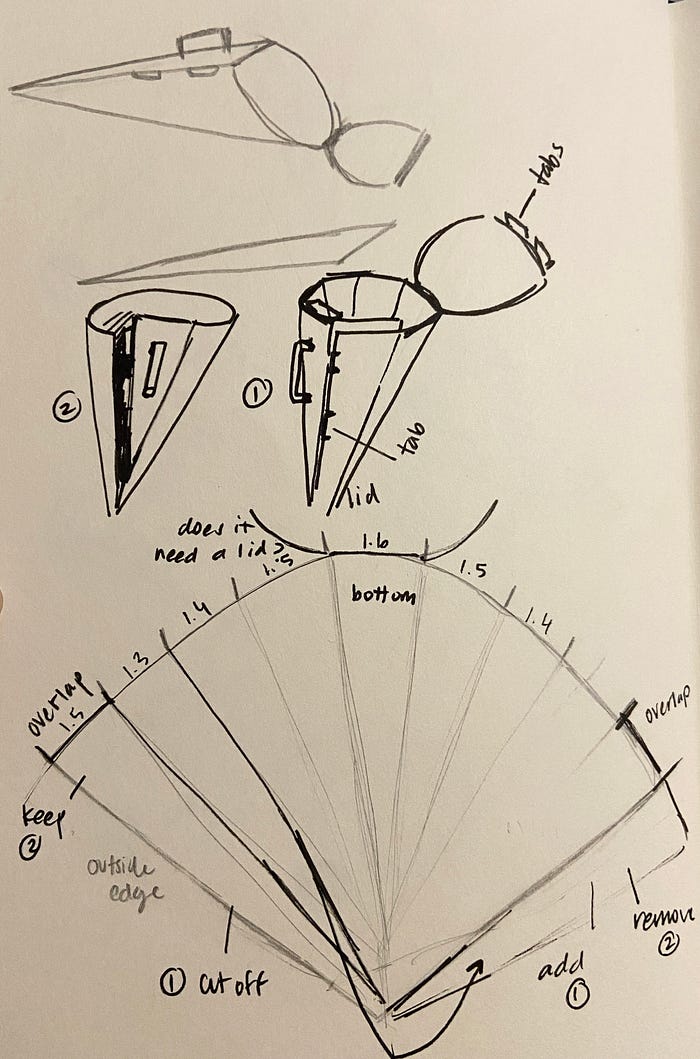 tabs
②
①
tab
lid
does it
need a lid?
1.5
1.6
1.5
bottom
1.4
1.4
1.3
overlap
1.5
overlap
keep
②
outside
edge
① cut off
add
①
remove
②